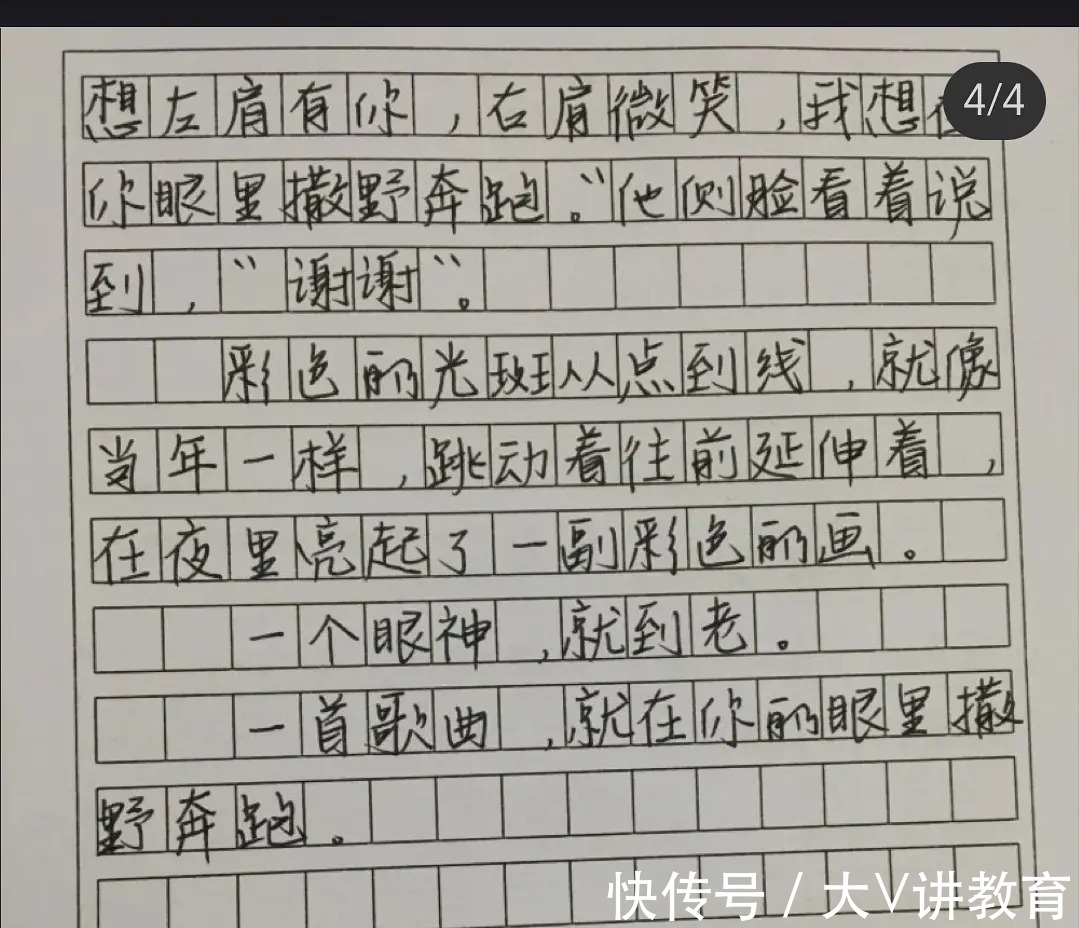 想左肩有你，右肩微笑，我想在
4/4
你眼里撒野奔跑。"他侧脸看着说
到，"谢谢"。
彩色的光斑从点到线，就像
当年一样，跳动着往前延伸着，
在夜里亮起了一副彩色的画。
一个眼神，就到老。
一首歌曲，就在你的眼里撒
野奔跑。
快传号 / 大V讲教育